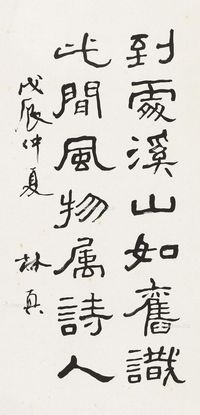 到處溪山如舊識
此間風物属詩人
戊辰仲夏 林真